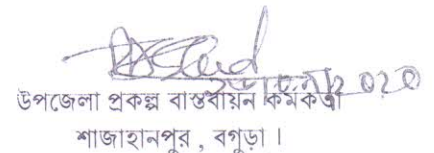 উপজেলা প্রকল্প বাস্তবায়ন কর্মকর্তা
শাজাহানপুর , বগুড়া ।